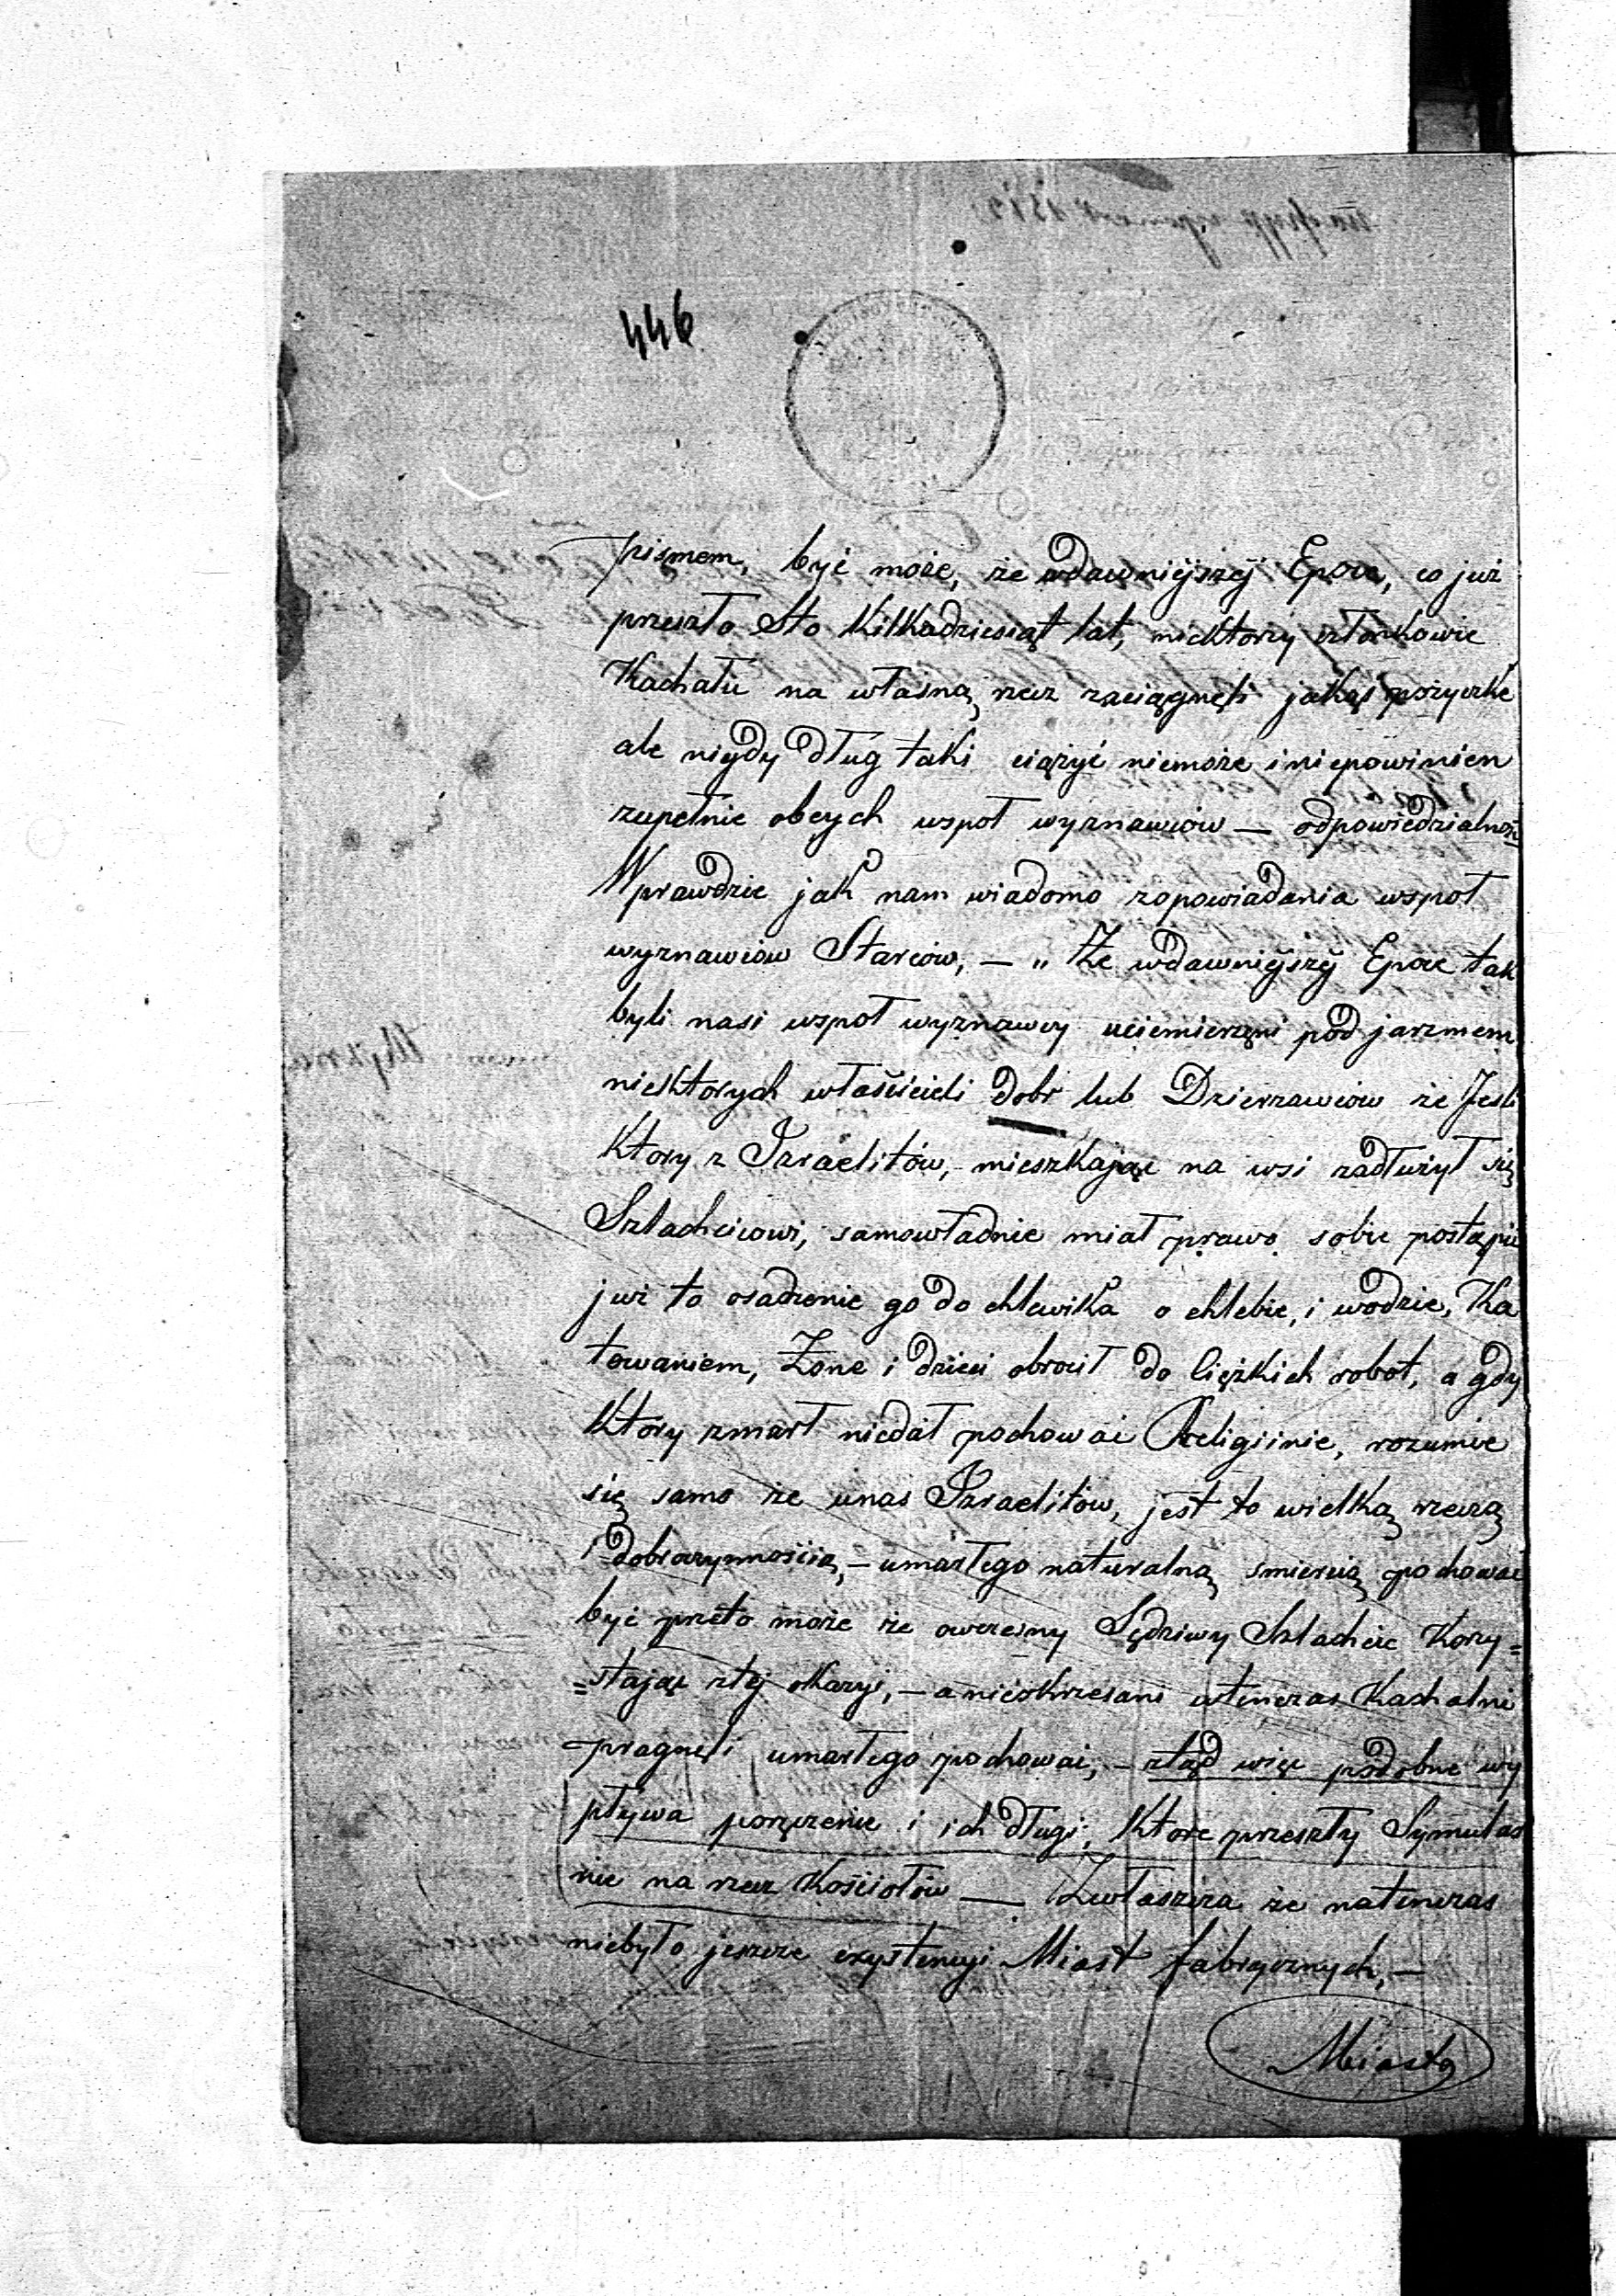 446
pismem, być może, że wdawniejszej Epoce, co już
przeszło Sto Kilkadziesiąt lat, niektorzy członkowie
Kachału na własną rzecz zaciągneli jakąś pożyczkę
ale nigdy dług taki ciążyć niemoże i niepowinien
zupełnie obcych wspoł wyznawcow — odpowiedzialność
Wprawdzie jak nam wiadomo zopowiadania wspoł
wyznawcow Starcow, — „ Że wdawniejszej Epoce tak
byli nasi wspoł wyznawcy uciemiężeni pod jarzmem
niektorych właścicieli dobr lub Dzierzawcow że Jesli
Ktory z Izraelitów, mieszkając na wsi zadłużył się
Szlachcicowi, samowładnie miał prawo sobie postąpić
już to osadzenie go do chlewika o chlebie, i wodzie, Ka
towaniem, Żone i dzieci obrocił do Ciężkich robot, a gdy
Ktory zmarł niedał pochować Religiinie, rozumie
się samo że unas Izraelitów, jest to wielką rzeczą
i dobroczynnością, — umarłego naturalną smiercią pochować
być przeto może że owczesny Sędziwy Szlachcic Korzy=
=stając ztej okazyi, — a nieokrzesani wtenczas Kachalni
pragneli umarłego pochować, — ztąd więc podobne wy
pływa poręczenie i ich długi, Ktore przeszły Symulac
nie na rzecz Kościołów — Zwłaszcza że natenczas
niebyło jeszcze exystencyi Miast fabrycznych, —
Miasto